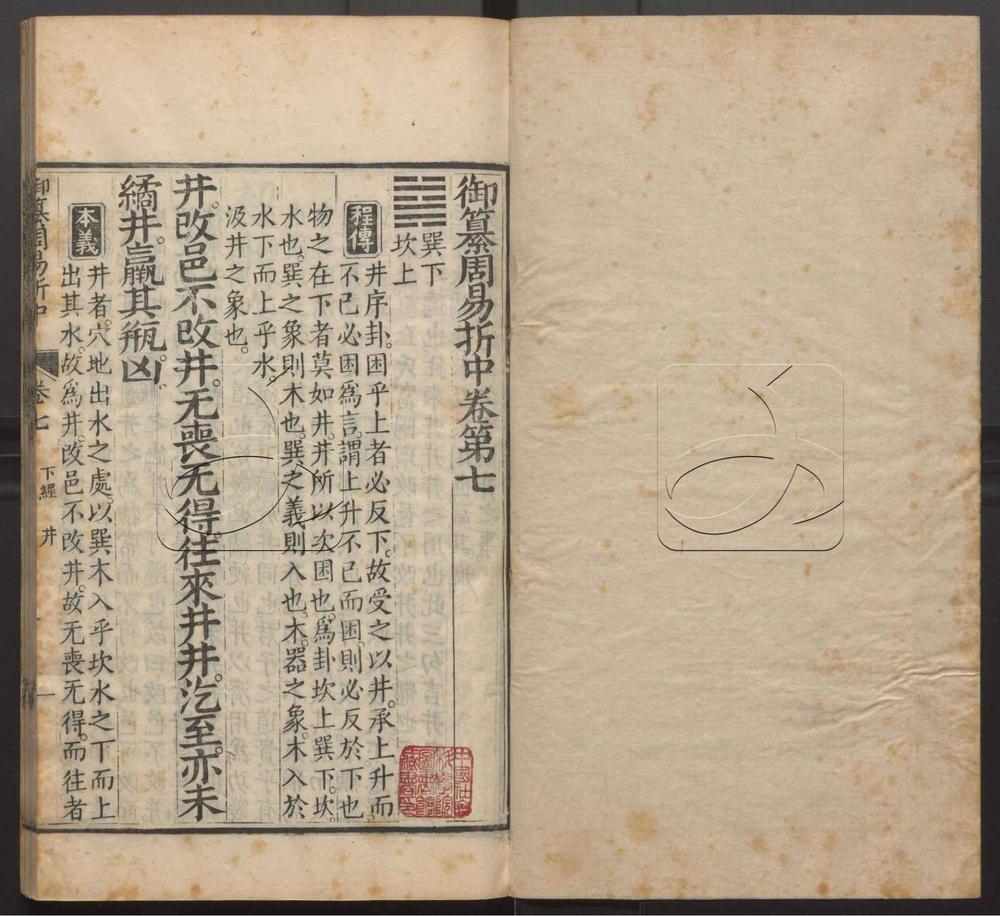 御纂周易折中卷第七
巽下
坎上
程傳
井序卦困乎上者必反下故受之以井承上升而
不已必困爲言謂上升不已而困則必反於下也
物之在下者莫如井井所以次困也爲卦坎上巽下坎
水也巽之象則木也巽之義則入也木器之象木入於
水下而上乎水
汲井之象也
井改邑不改井无喪无得往來井井汔至亦未
繘井羸其瓶凶
本義
井者穴地出水之處以巽木入乎坎水之下而上
出其水故爲井改邑不改井故无喪无得而往者
御纂周易折中
卷七
下經 井
一